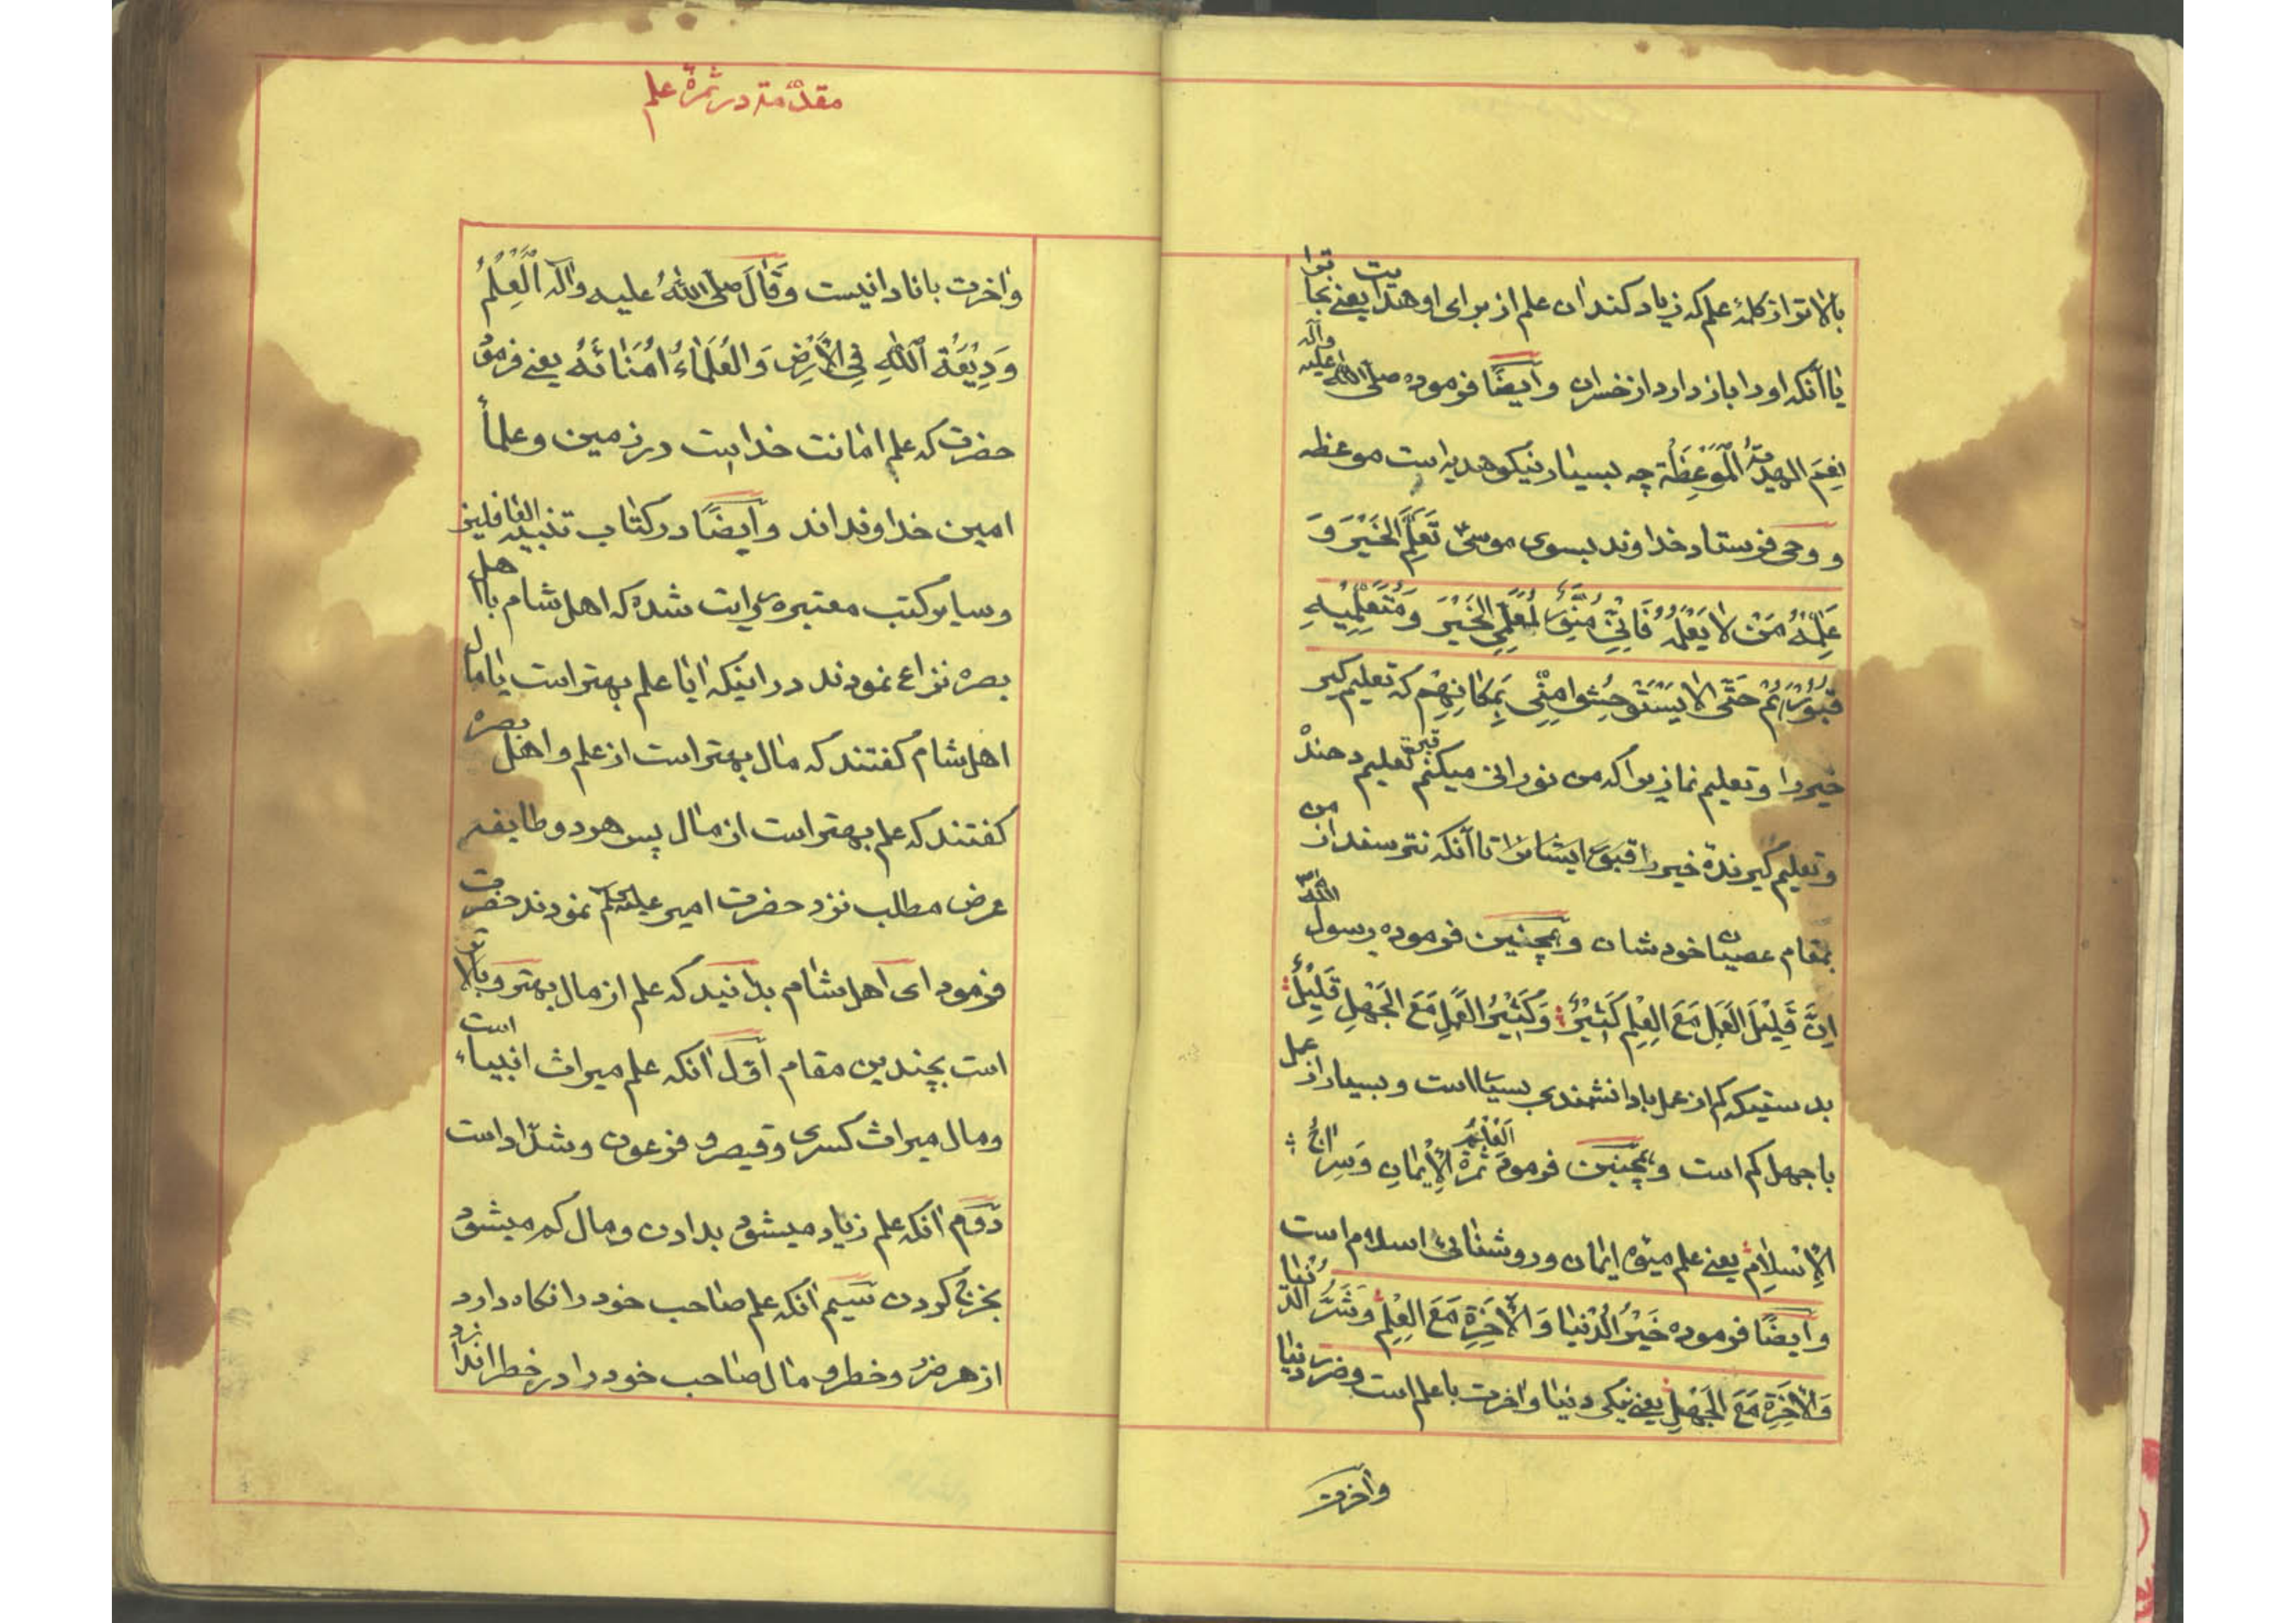 بالاتر از کلمهٔ علم که زیاد کند ان علم از برای او هدایت یعنی نجا
یا آنکه او را باز دارد از خسران و ایضًا فرموده صلّی اللّٰه علیه وآله
نِعْمَ الهدیّةُ الْمَوْعِظَة چه بسیار نیکو هدیه است موعظه
و وحی فرستاد خداوند بسوی موسی تَعَلَّمِ الْخَیْرَ وَ
عَلِّمْهُ مَنْ لا یَعْلَمُهُ فَاِنّی مُنَوِّرٌ لِمُعَلِّمِی الْخَیْرَ وَ مُتَعَلِّمِیْهِ
قُبُوْرَهُمْ حَتّٰی لا یَسْتَوْحِشُوا مِنّی بِمَکانِهِمْ که تعلیم کیر
خیر را و تعلیم نما زیرا که من نورانی میکنم قبر تعلیم دهندْ
و تعلیم کیرندهٔ خیر را قبور ایشانرا تا آنکه نترسند از من
بمقام عصیان خودشان و همچنین فرموده رسول اللّٰه
اِنَّ قَلِیْلَ الْعَمَلِ مَعَ الْعِلْمِ کَثِیْرٌ وَ کَثِیْرُ الْعَمَلِ مَعَ الْجَهْلِ قَلِیْلٌ
بدستیکه کم از عمل با دانشمندی بسیار است و بسیار از عمل
با جهل کم است و همچنین فرموده اَلْعِلْمُ ثَمَرَةُ الْاِیْمانِ وَ سِراجُ
الْاِسْلامِ یعنی علم میوه ایمان و روشنائی اسلام است
و ایضًا فرموده خَیْرُ الدُّنْیا وَ الْاٰخِرَةِ مَعَ الْعِلْمِ وَ شَرُّ الدُّنْیا
وَالْاٰخِرَةِ مَعَ الْجَهْلِ یعنی نیکی دنیا و اخرت با علم است و ضرر دنیا
وآخرت
مقدّمة در ثمرهٔ علم
واخرت با نادانیست وَ قٰالَ صلّی اللّٰهُ علیه وآله اَلْعِلْمُ
وَدِیْعَةُ اللّٰهِ فِی الْاَرْضِ وَ الْعُلَمٰاءُ اُمَنٰائُهُ یعنی فرمود
حضرت که علم امانت خدا است در زمین و علمأ
امین خداوند اند و ایضًا در کتاب تنبیه الغافلین
و سایر کتب معتبره روایت شده که اهل شام با اهل
بصره نزاع نمودند در اینکه ایا علم بهتر است یا مال
اهل شام کفتند که مال بهتر است از علم و اهل بصره
کفتند که علم بهتر است از مال پس هر دو طایفه
عرض مطلب نزد حضرت امیر علیه السلم نمودند حضرت
فرمود ای اهل شام بدانید که علم از مال بهتر و بالاتر
است بچندین مقام اوّل آنکه علم میراث انبیاء است
و مال میراث کسری و قیصر و فرعون و شدّاد است
دوّم انکه علم زیاد میشود بدادن و مال کم میشود
بخرج کردن سیّم آنکه علم صاحب خود را نکاه دارد
از هر ضرر و خطر و مال صاحب خود را در خطر اندازد